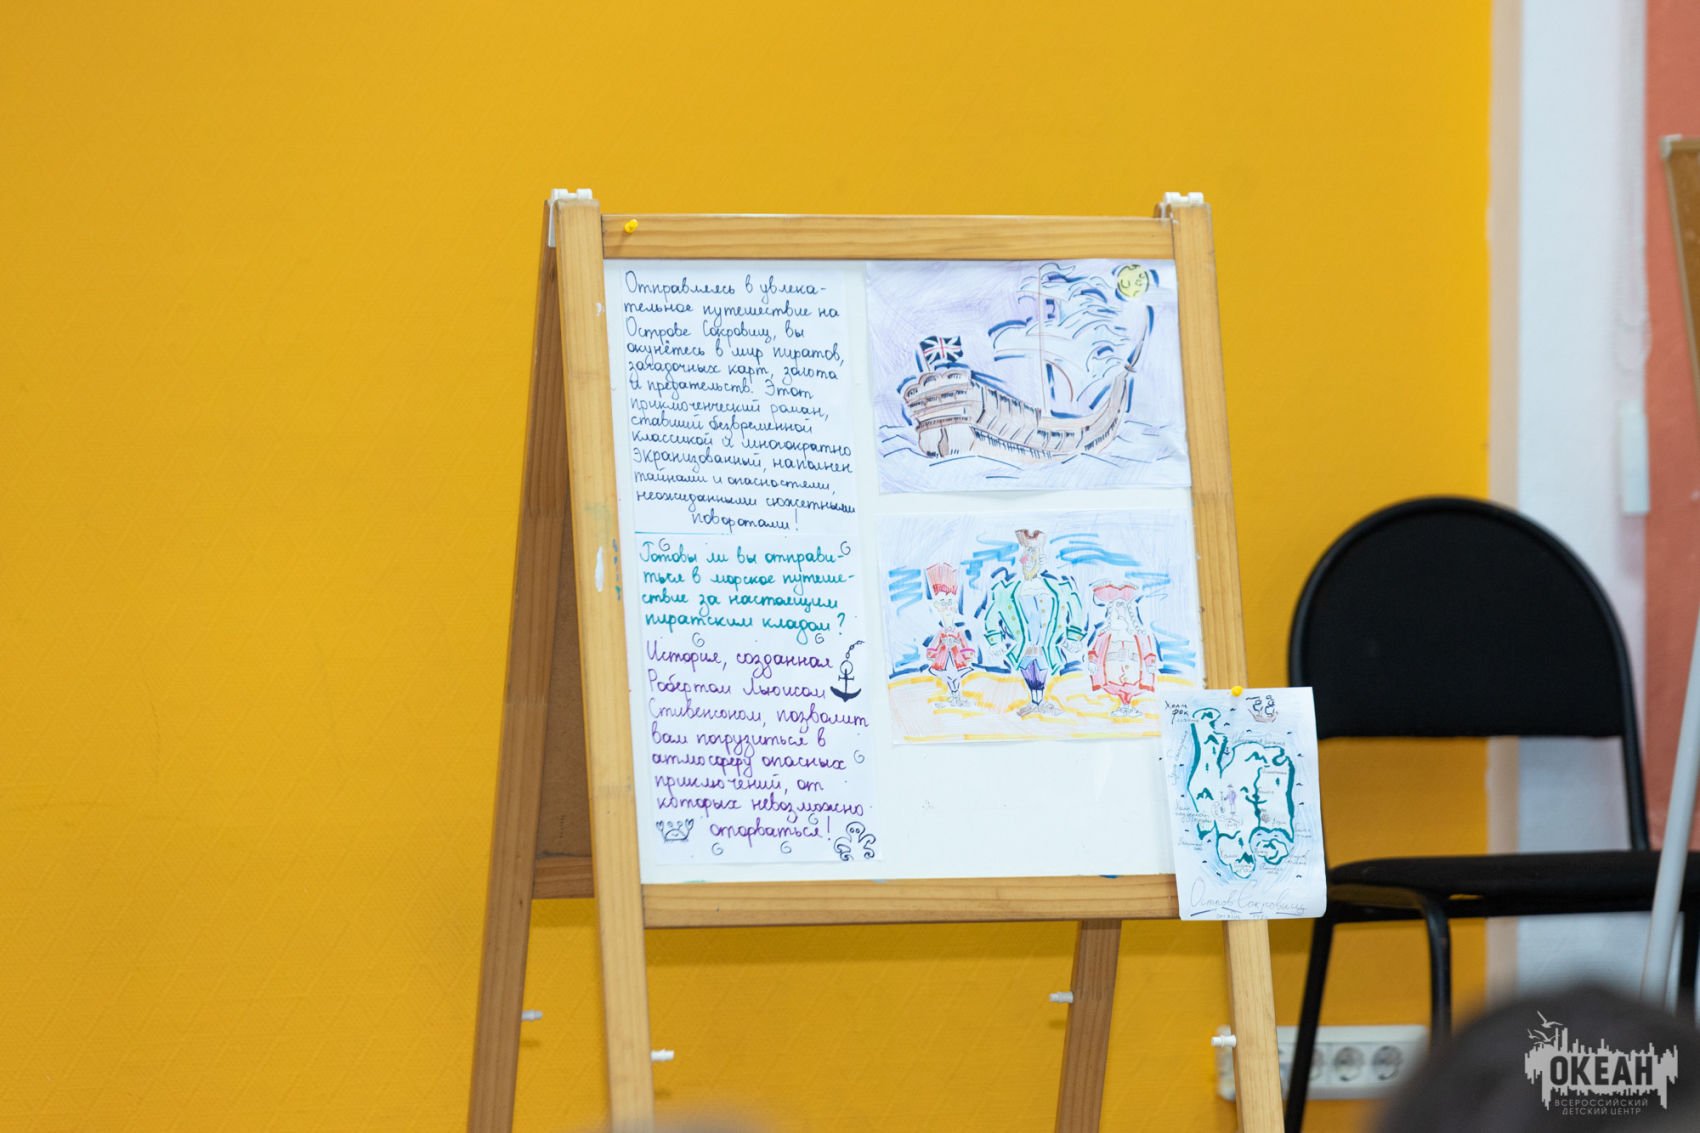 Отправляясь в увлека-
тельное путешествие на
Острове Сокровищ, вы
окунётесь в мир пиратов,
загадочных карт, золота
и предательств. Этот
приключенческий роман,
ставший безвременной
классикой и многократно
экранизованный, наполнен
тайнами и опасностями,
неожиданными сюжетными
поворотами!
Готовы ли вы отправи-
ться в морское путеше-
ствие за настоящим
пиратским кладом?
История, созданная
Робертом Льюисом
Стивенсоном, позволит
вам погрузиться в
атмосферу опасных
приключений, от
которых невозможно
оторваться!
Остров Сокровищ
ОКЕАН
ВСЕРОССИЙСКИЙ
ДЕТСКИЙ ЦЕНТР